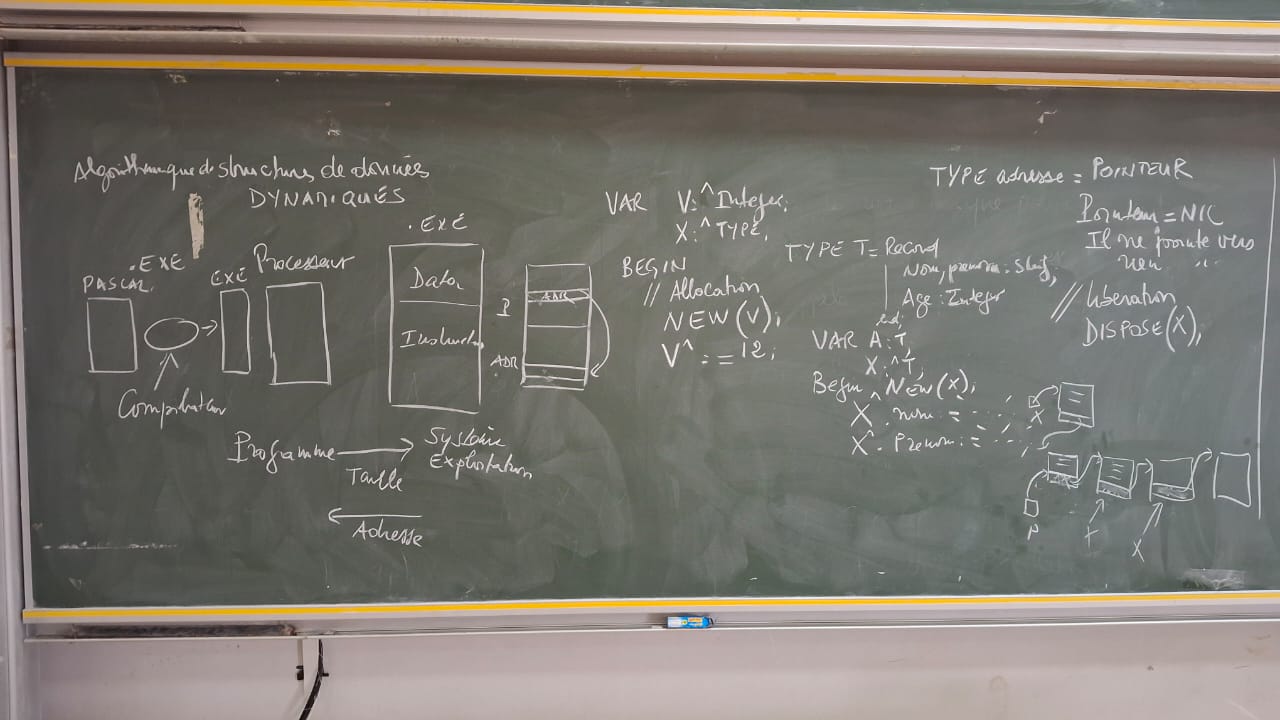 Algorithmique de structures de données
DYNAMIQUES
PASCAL
.EXE
EXE
Processeur
Compilateur
.EXE
Data
Instruct
P
ADR
ADR
Programme
Taille
Adresse
Système
Exploitation
VAR V: ^Integer;
X: ^TYPE,
BEGIN
// Allocation
NEW(V);
V^ := 12;
TYPE T = Record
Nom, prenom: 
Age: Integer
end;
VAR A: T,
X: ^T,
Begin NEW(X);
X^. nom :=
X^. Prenom :=
TYPE adresse = POINTEUR
Pointeur = NIL
Il ne pointe vers
rien
// liberation
DISPOSE(X);
X
P
X
X